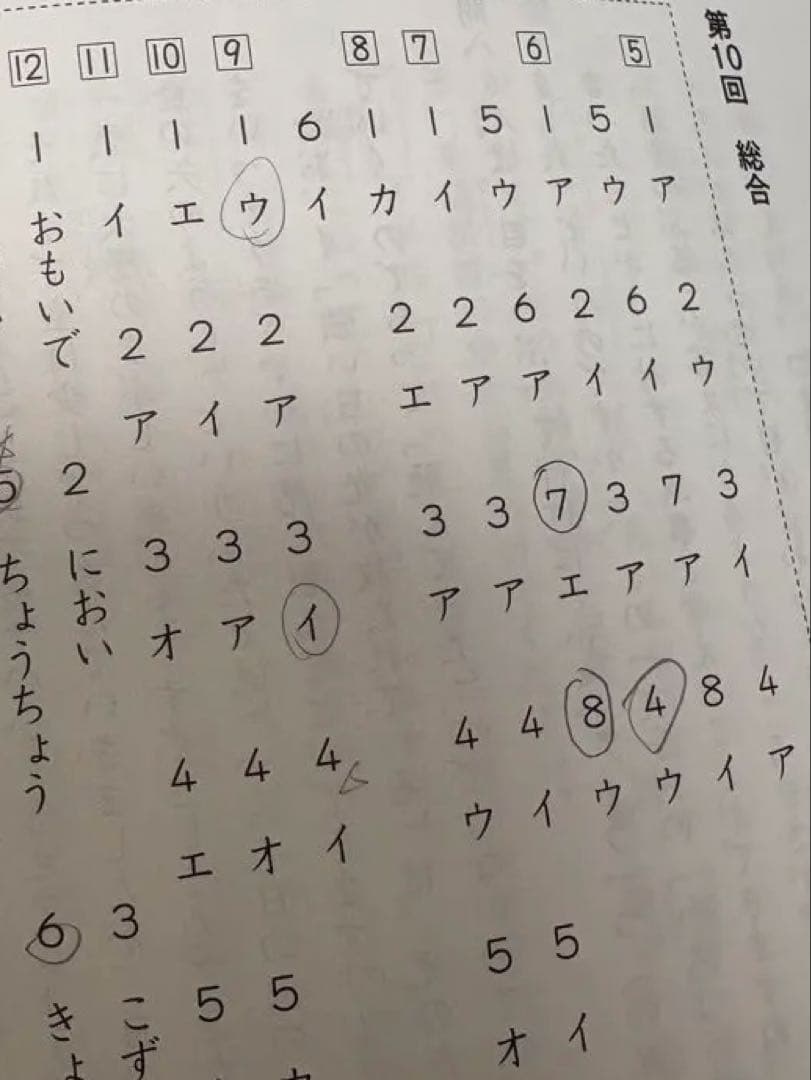 第10回 総合
5 1 ア 2 ウ 3 イ 4 ア
5 ウ 6 イ 7 ア 8 イ
6 1 ア 2 イ 3 ア 4 ウ
5 ウ 6 ア 7 エ 8 ウ
7 1 イ 2 ア 3 ア 4 イ 5 イ
8 1 カ 2 エ 3 ア 4 ウ 5 オ
6 イ
9 1 ウ 2 ア 3 イ 4 イ
10 1 エ 2 イ 3 ア 4 オ 5
11 1 イ 2 ア 3 オ 4 エ 5
12 1 おもいで 2 におい 3 こず
5 ちょうちょう 6 きょ